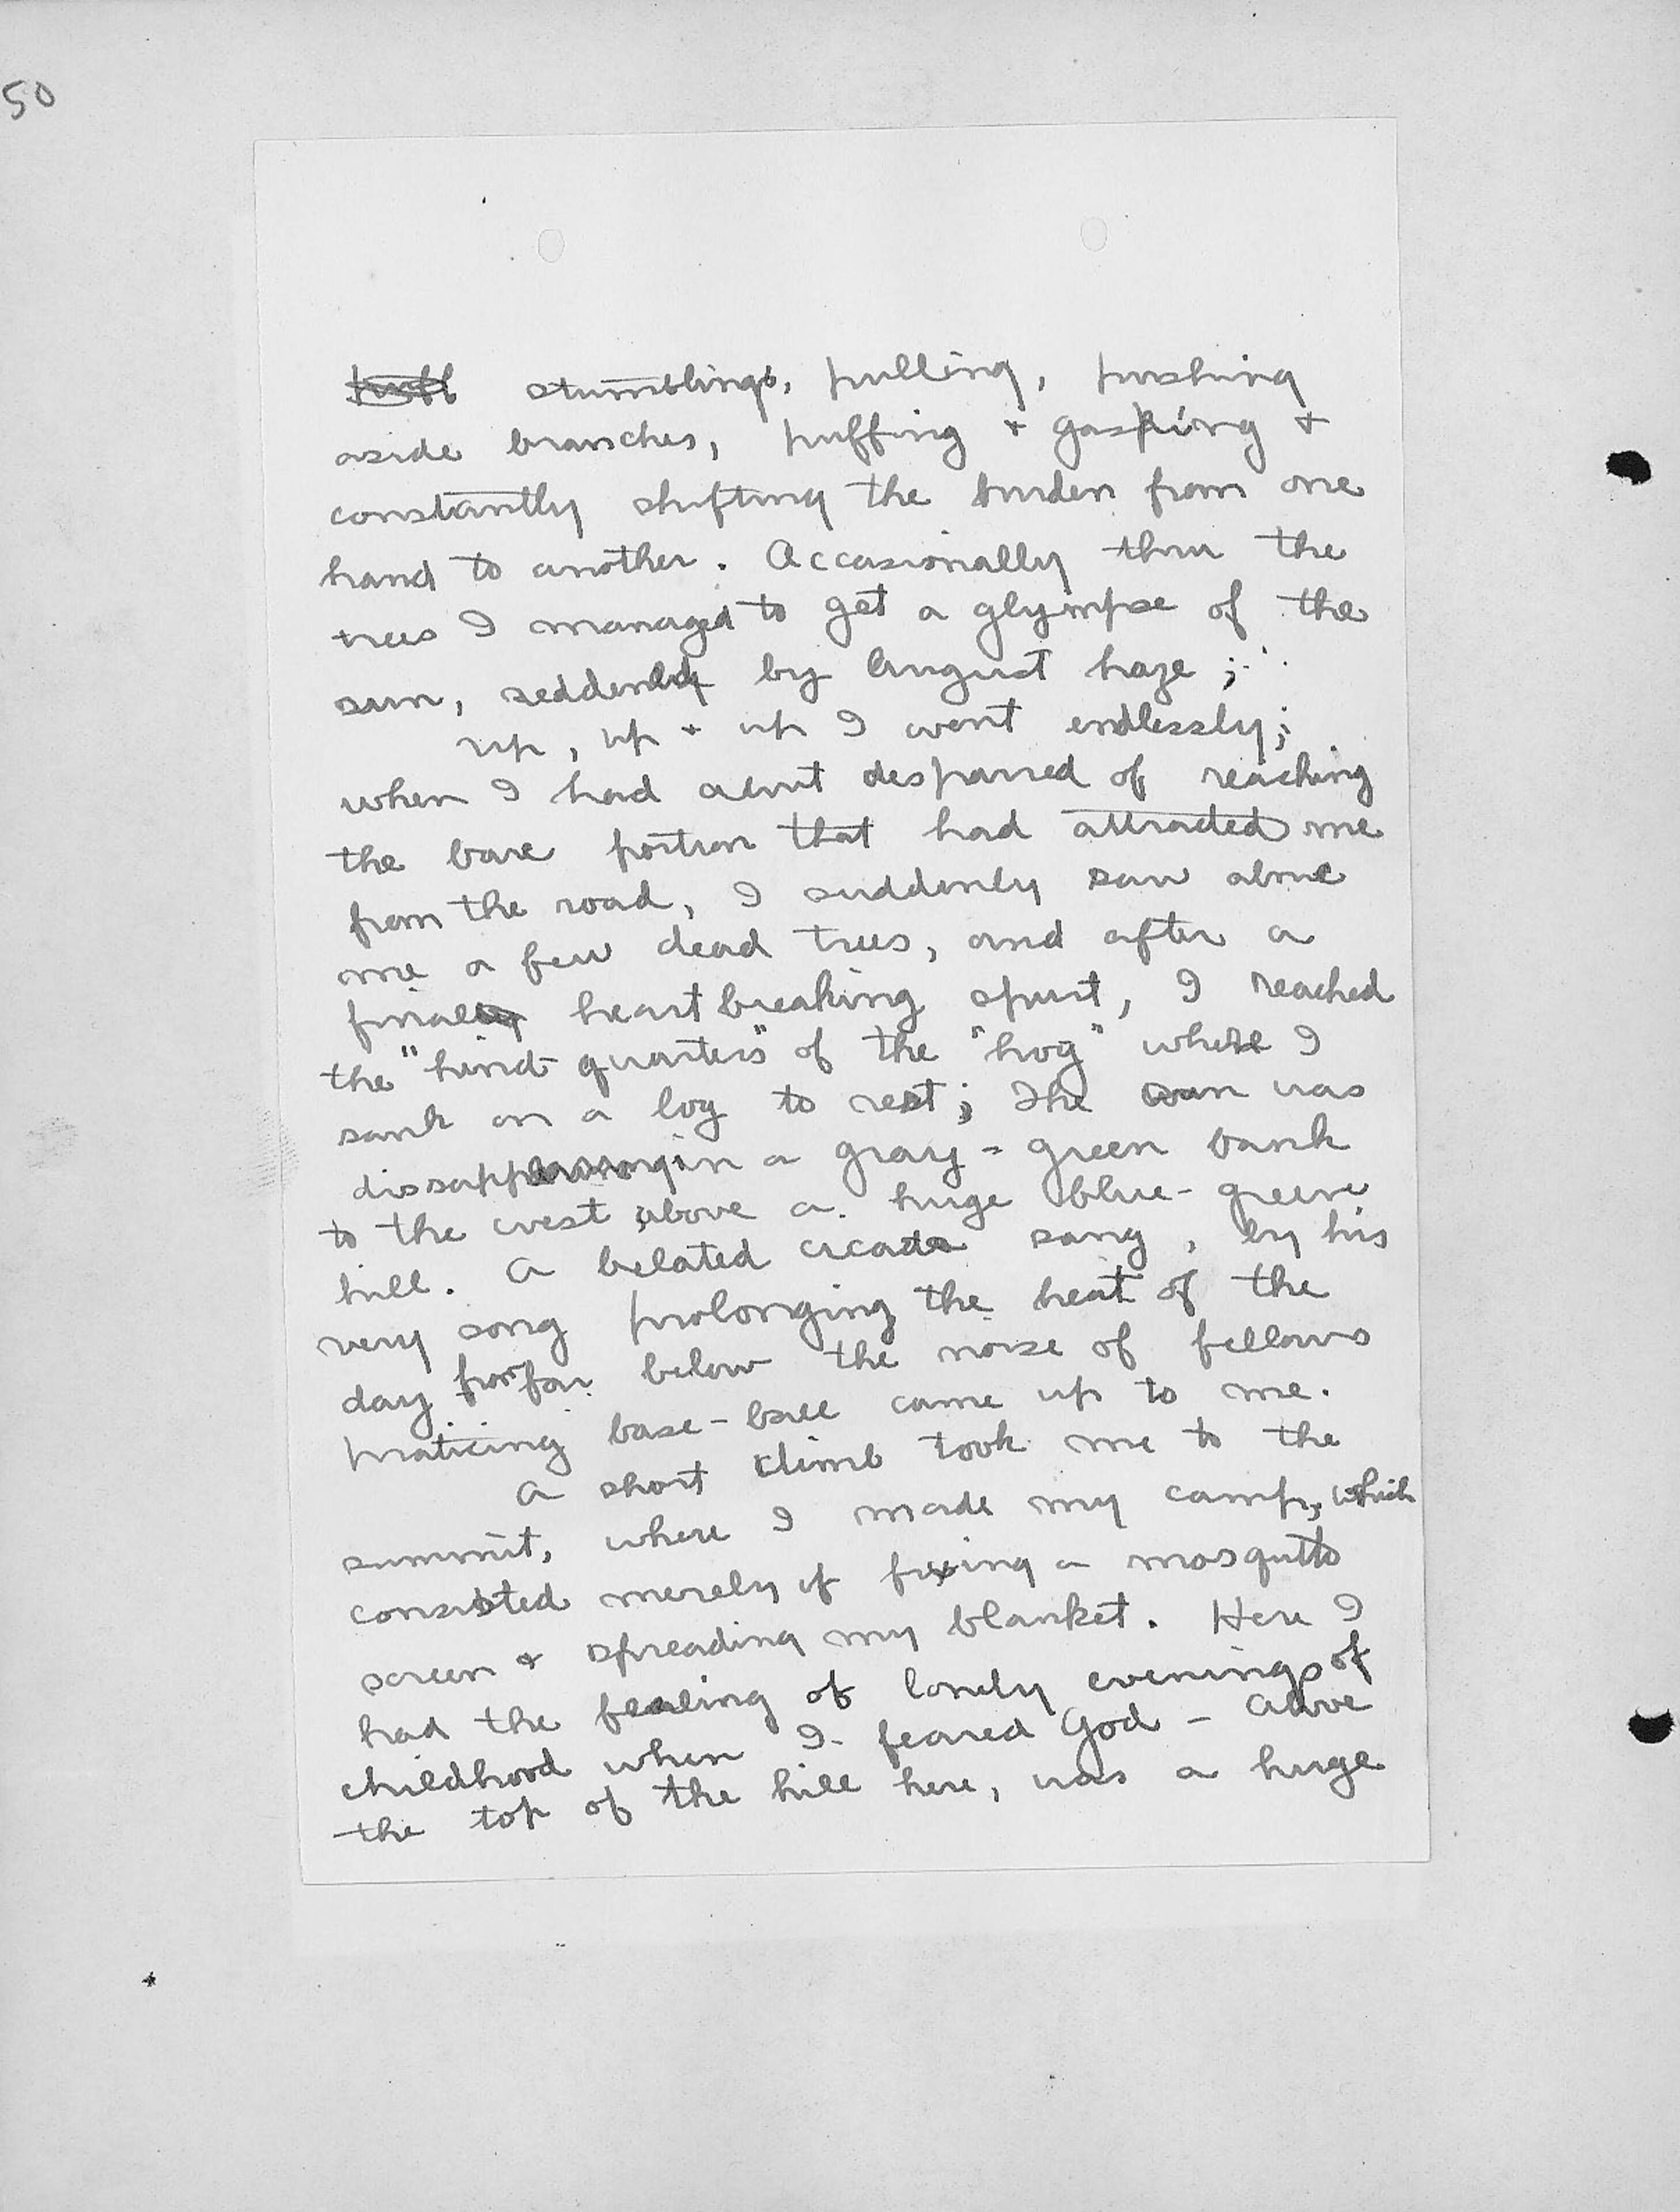 50
puff stumblings, pulling, pushing
aside branches, puffing & gasping &
constantly shifting the burden from one
hand to another. Accasionally thru the
trees I managed to get a glympse of the
sun, by August haze ;
up, up & up I went endlessly;
when I had about despaired of reaching
the bare portion that had attracted me
from the road, I suddenly saw above
me a few dead trees, and after a
final heart breaking spurt, I reached
the "hind-quarters" of the "hog" where I
sank on a log to rest; The sun was
dissappearing in a gray-green bank
to the west, above a huge blue-green
hill. A belated cicada sang, by his
very song prolonging the heat of the
day from far below the noise of fellows
praticing base-ball came up to me.
A short climb took me to the
summit, where I made my camp, which
consisted merely of fixing a mosquito
screen & spreading my blanket. Here I
had the feeling of lonely evenings of
childhood when I feared God - Above
the top of the hill here, was a huge